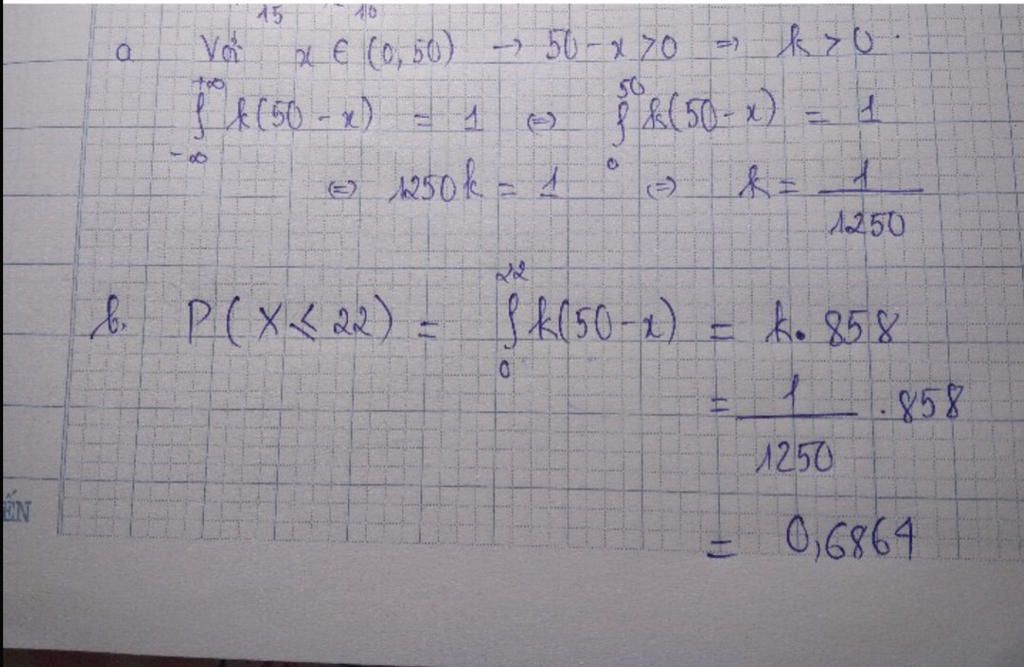 15 10
a Với x ∈ (0, 50) → 50 - x > 0 ⇒ k > 0.
∫_{-∞}^{+∞} k(50 - x) = 1 ⇔ ∫_0^{50} k(50 - x) = 1
⇔ 1250k = 1 ⇔ k = 1/1250
b. P(X < 22) = ∫_0^{22} k(50 - x) = k. 858
= 1/1250 . 858
= 0,6864
ẾN